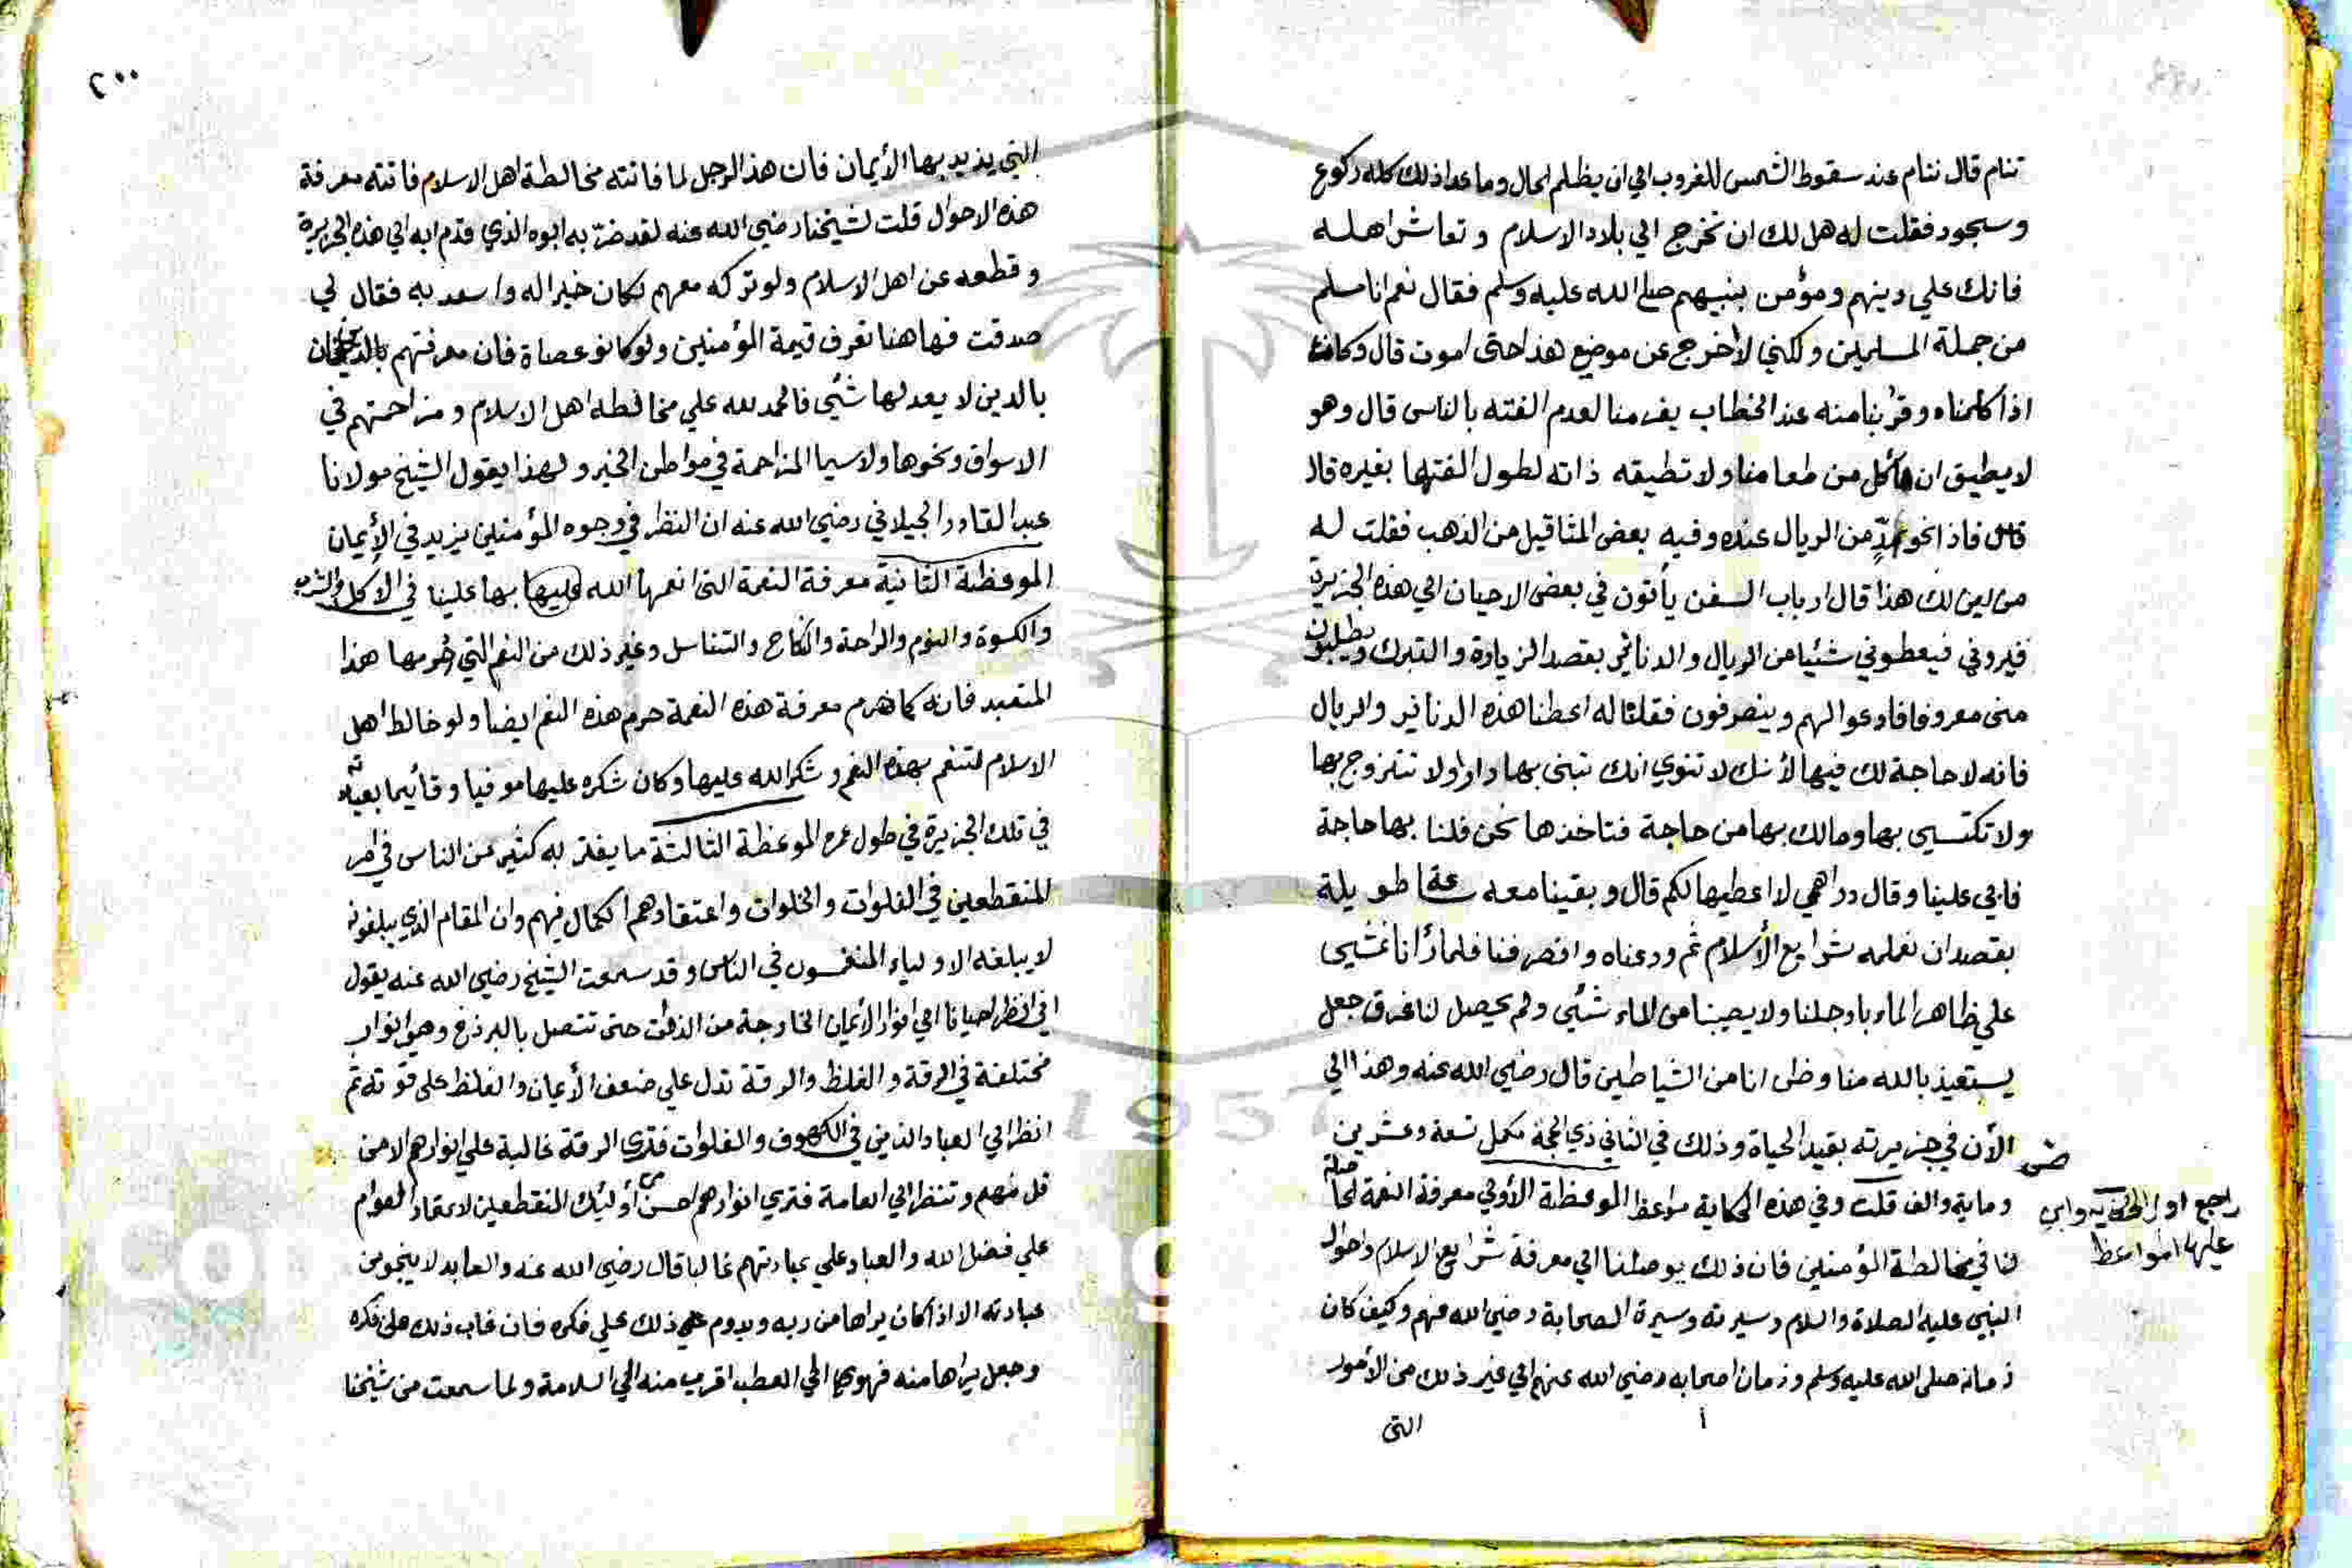 تنام قال ننام عند سقوط الشمس للغروب الي ان يظلم الحال وما عدا ذلك كله ركوع
وسجود فقلت له هل لك ان تخرج الي بلاد الاسلام وتعاشر اهله
فانك علي دينهم ومؤمن بنبيهم صلي الله عليه وسلم فقال نعم انا مسلم
من جملة المسلمين ولكني لا أخرج عن موضع هذا حتى اموت قال وكان
اذا كلمناه وقربنا منه عند الخطاب يفر منا لعدم الفته بالناس قال وهو
لا يطيق ان يأكل من طعامنا ولا تطيقه ذاته لطول الفتها بغيره قال
فاذا نحو مدٍّ من الريال عنده وفيه بعض المثاقيل من الذهب فقلت له
من اين لك هذا قال ارباب السفن يأتون في بعض الاحيان الي هذه الجزيرة
فيروني فيعطوني شئيا من الريال والدنانير بقصد الزيارة والتبرك ويطلبون
منى معروفا فادعوا لهم وينصرفون فقلنا له اعطنا هذه الدنانير والريال
فانه لا حاجة لك فيها لأنك لا تنوي انك تبنى بها دارا ولا تتزوج بها
ولا تكتسي بها ومالك بها من حاجة فتاخذها نحن فلنا بها حاجة
فابي علينا وقال دراهمي لا اعطيها لكم قال وبقينا معه ساعة طويلة
بقصد ان نعلمه شرايع الأسلام ثم ودعناه وانصرفنا فلما رأنا نمشي
علي ظاهر الماء بارجلنا ولا يصيبنا من الماء شئي ولم يحصل لنا غرق جعل
يستعيذ بالله منا وظن انا من الشياطين قال رضي الله عنه وهذا الي
الأن في جزيرته بقيد الحياة وذلك في الثاني ذي الحجة مكمل تسعة وعشرين
وماية والف قلت وفي هذه الحكاية مواعظ الموعظة الأولي معرفة النعمة الحاصلة
لنا في مخالطة المؤمنين فان ذلك يوصلنا الي معرفة شرايع الاسلام واحوال
النبي عليه الصلاة والسلام وسيرته وسيرة الصحابة رضي الله عنهم وكيف كان
زمانه صلى الله عليه وسلم وزمان اصحابه رضي الله عنهم الي غير ذلك من الأمور
التى
راجع اول الحكاية وابن
عليها المواعظ
٢٠٠
التي يزيد بها الأيمان فان هذا الرجل لما فاتته مخالطة اهل الاسلام فاتته معرفة
هذه الاحوال قلت لشيخنا رضي الله عنه لقد ضر به ابوه الذي قدم به الي هذه الجزيرة
وقطعه عن اهل الاسلام ولو تركه معهم لكان خيرا له واسعد به فقال لي
صدقت فهاهنا تعرف قيمة المؤمنين ولو كانو عصاة فان معرفتهم
بالدين لا يعدلها شئي فالحمد لله علي مخالطة اهل الاسلام ومزاحمتهم في
الاسواق ونحوها ولا سيما المزاحمة في مواطن الخير ولهذا يقول الشيخ مولانا
عبد القادر الجيلاني رضي الله عنه ان النظر في وجوه المؤمنين يزيد في الأيمان
الموعظة الثانية معرفة النعمة التى انعمها الله عليها بها علينا في الاكل والشرب
والكسوة والنوم والراحة والنكاح والتناسل وغير ذلك من النعم التي حُرمها هذا
المتعبد فانه كما حرم معرفة هذه النعمة حرم هذه النعم ايضا ولو خالط اهل
الاسلام لتنعم بهذه النعم وشكر الله عليها وكان شكره عليها موفيا وقائيما بعبادته
في تلك الجزيرة في طول عمره الموعظة الثالثة ما يغتر به كثير من الناس في امر
المنقطعين في الفلوات والخلوات واعتقادهم الكمال فيهم وان المقام الذي يبلغونه
لا يبلغه الاولياء المنغمسون في الناس وقد سمعت الشيخ رضي الله عنه يقول
اني انظر احيانا الي انوار الأيمان الخارجة من الذوات حتى تتصل بالبرزخ وهي انوار
مختلفة في الرقة والغلظ والرقة تدل علي ضعف الأيمان والغلظ على قوته ثم
انظر الي العباد الذين في الكهوف والفلوات فترى الرقة غالبة علي انوارهم الا من
قل منهم وتنظر الي العامة فتري انوارهم احسن من أوليك المنقطعين لاعتماد العوام
علي فضل الله والعباد علي عبادتهم غالبا قال رضي الله عنه والعابد لا ينجو من
عبادته الا اذا كان يراها من ربه ويدوم على ذلك علي فكره فان غاب ذلك على فكره
وجعل يراها منه فهو الي العطب اقرب منه الي السلامة ولما سمعت من شيخنا